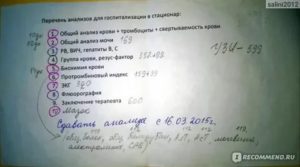 salini2012
Перечень анализов для госпитализации в стационар:
1 Общий анализ крови + тромбоциты + свертываемость крови
2 Общий анализ мочи 169
3 РВ, ВИЧ, гепатиты В, С
УЗИ - 599
4 Группа крови, резус-фактор
5 Биохимия крови
6 Протромбиновый индекс
7 ЭКГ
8 Флюорография
9 Заключение терапевта 600
10 Мазок
Сдавать анализы с 16.03.2015г.
общ. белок, общ.
электролиты
RECOMMEND.RU